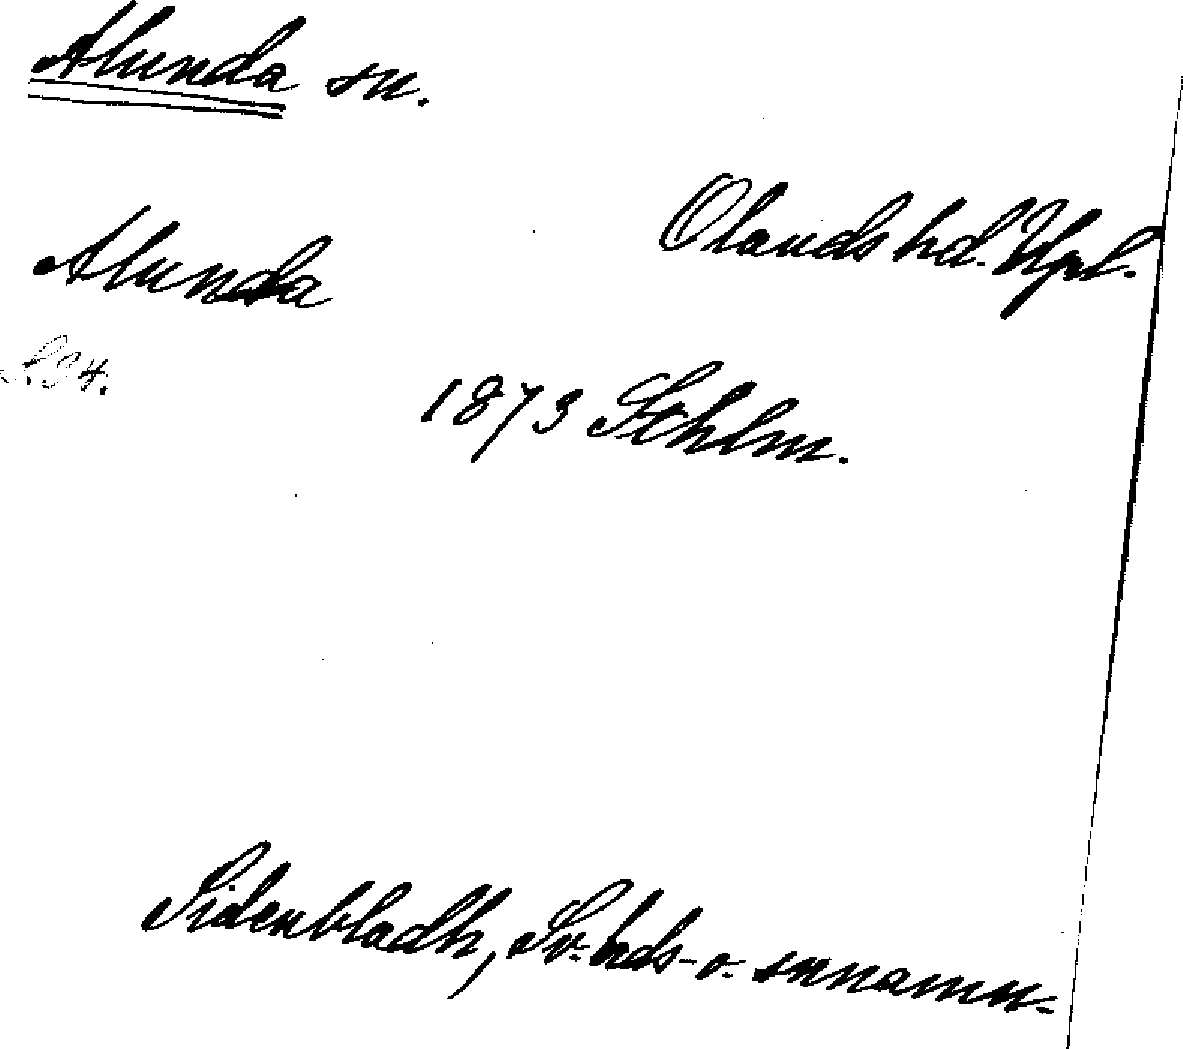 Alunda sn.
Olands hd. Upl.
Alunda
S. 34.
1873 Sthlm.
Sidenbladh, Sv. hds- o. snnamn.